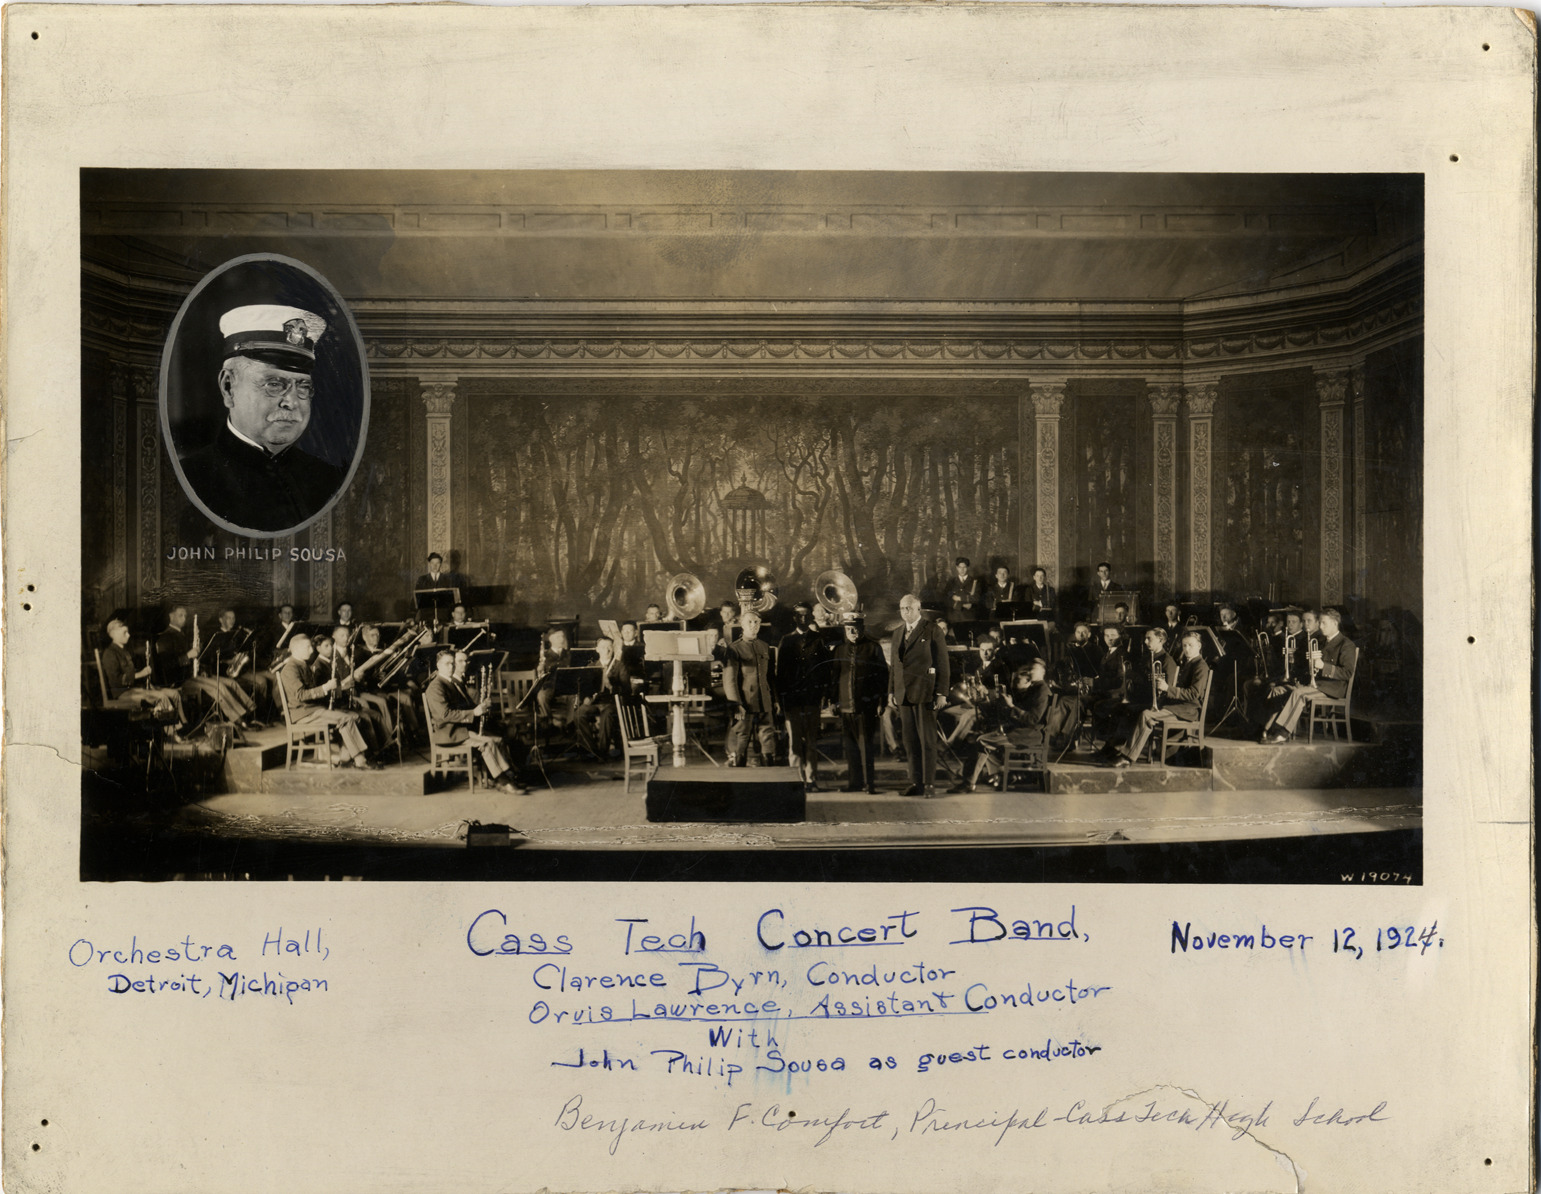 JOHN PHILIP SOUSA
W 19074
Orchestra Hall,
Detroit, Michigan
Cass Tech Concert Band,
Clarence Byrn, Conductor
Orvis Lawrence, Assistant Conductor
With
John Philip Sousa as guest conductor
November 12, 1924.
Benjamin F. Comfort, Principal-Cass Tech High School